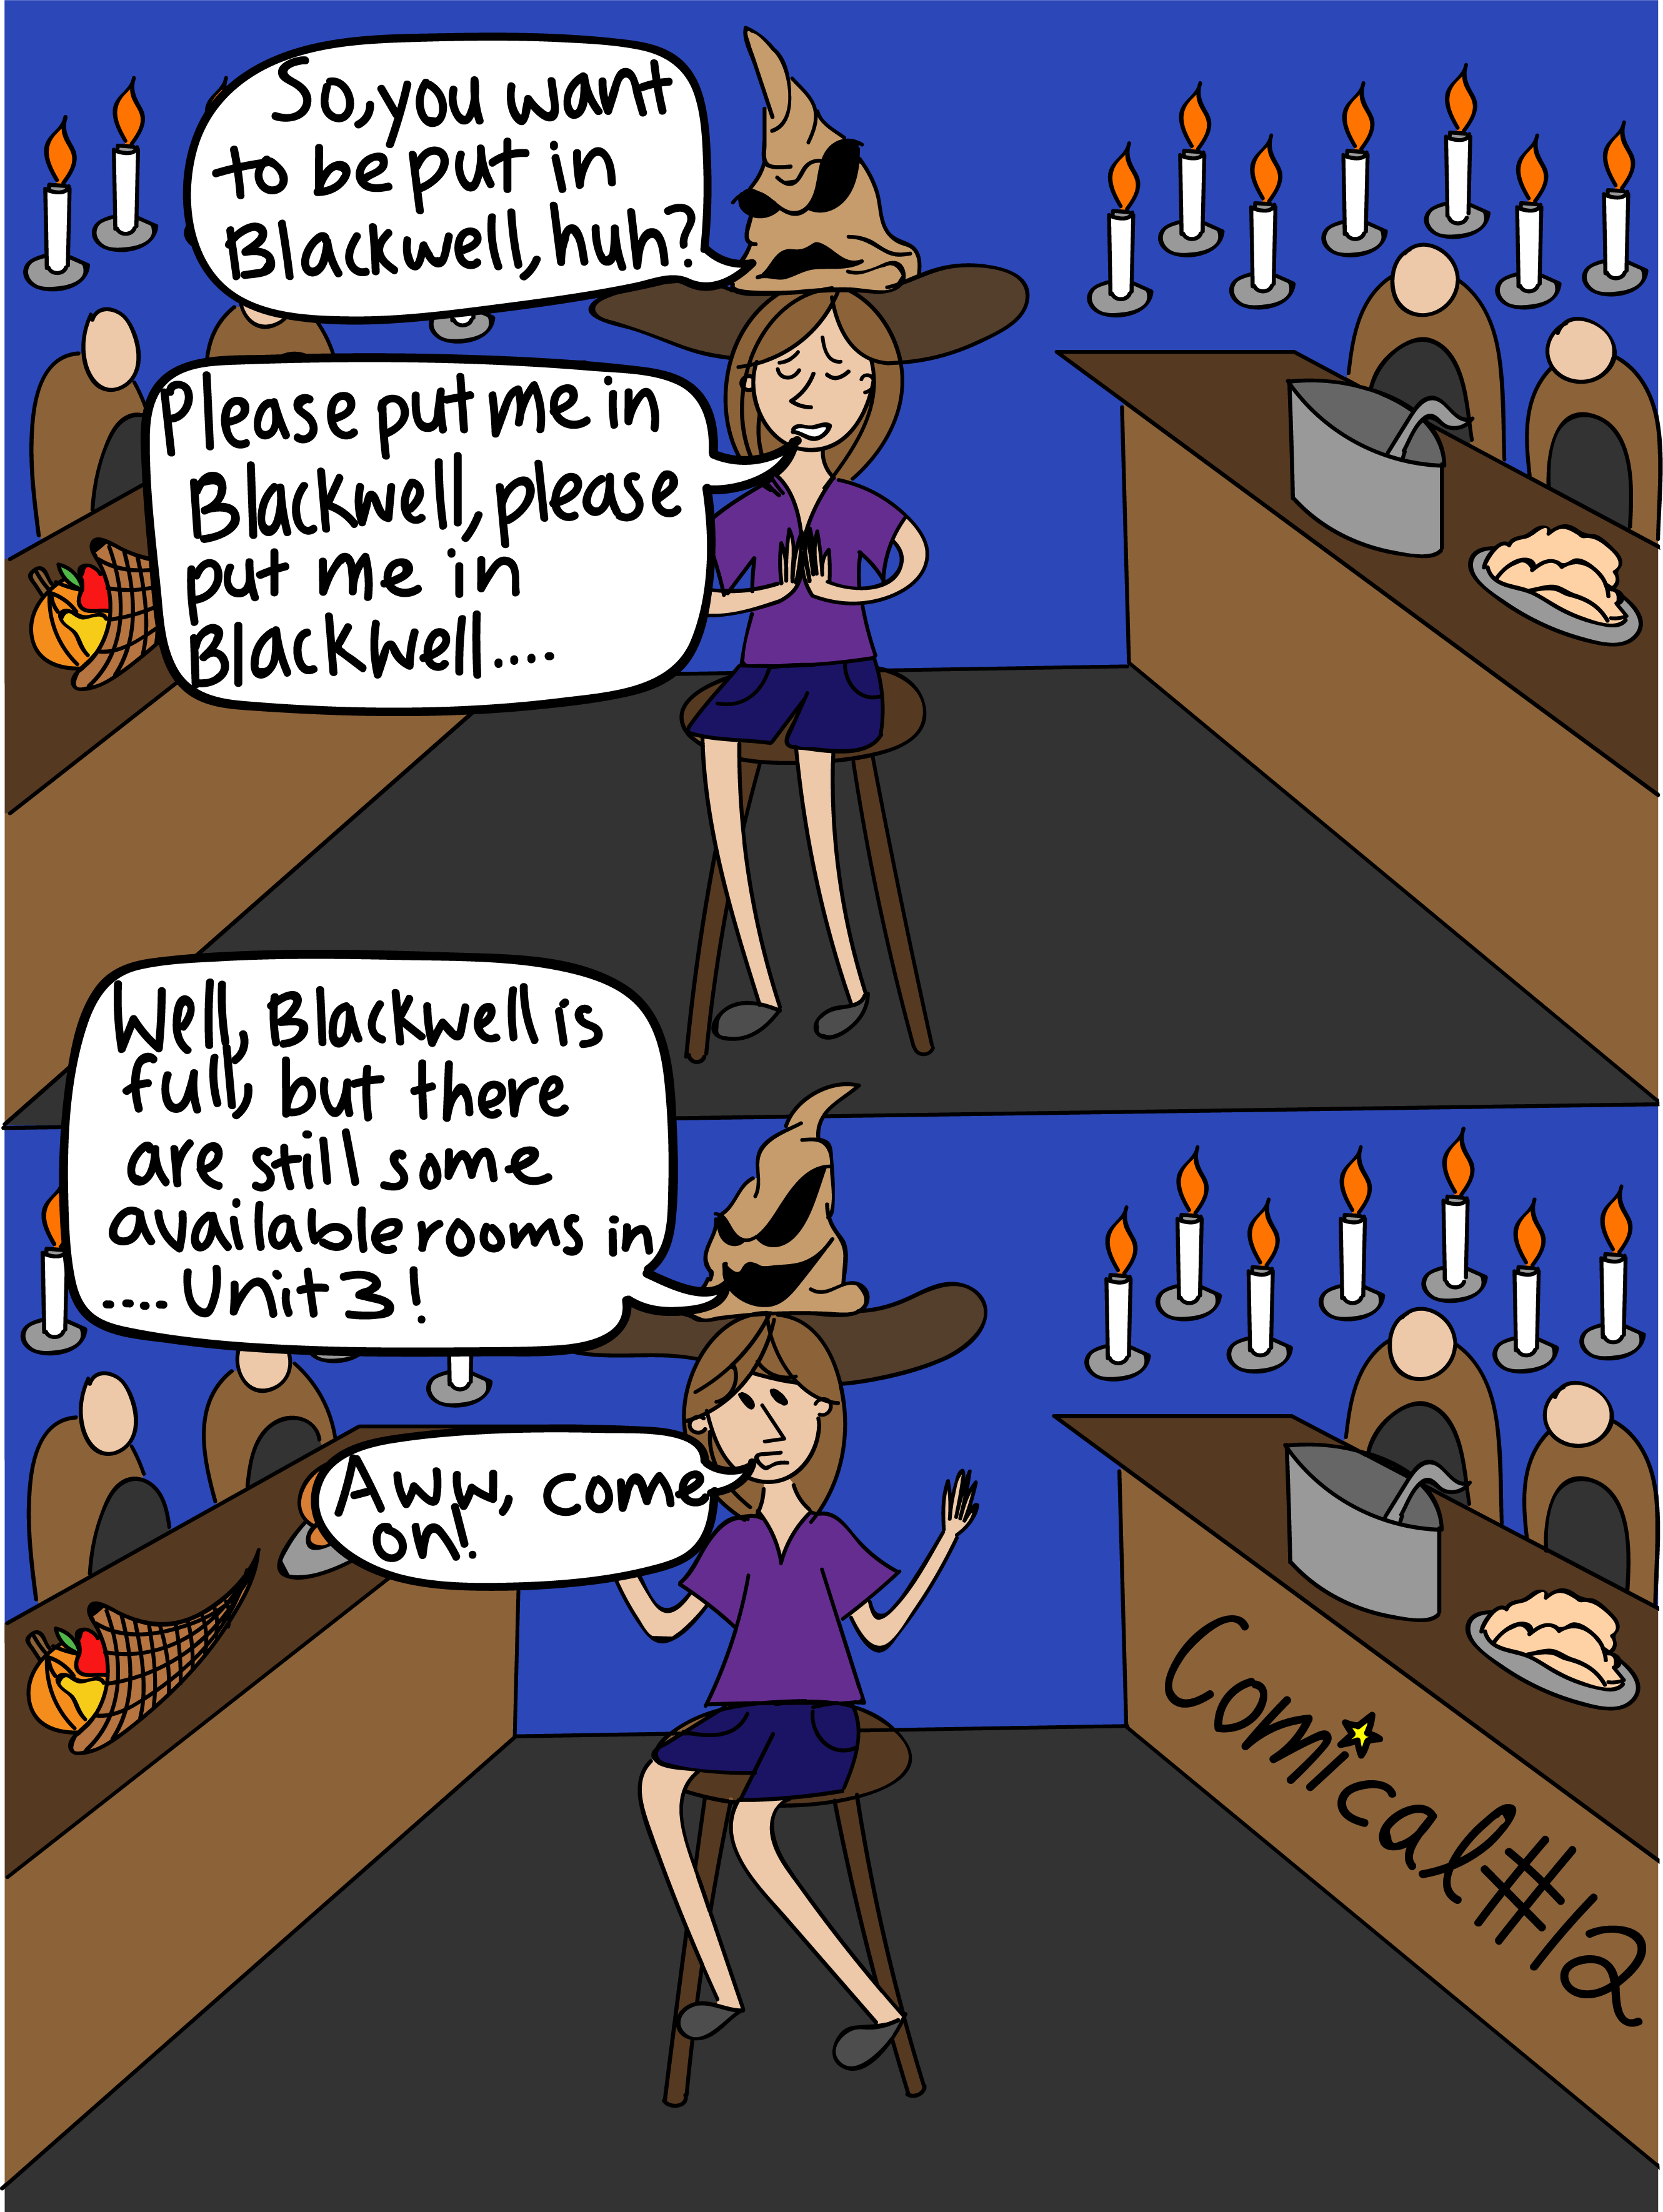 So, you want
to be put in
Blackwell, huh?
Please put me in
Blackwell, please
put me in
Blackwell....
Well, Blackwell is
full, but there
are still some
available rooms in
....Unit 3!
Aww, come
on!
Comical##a